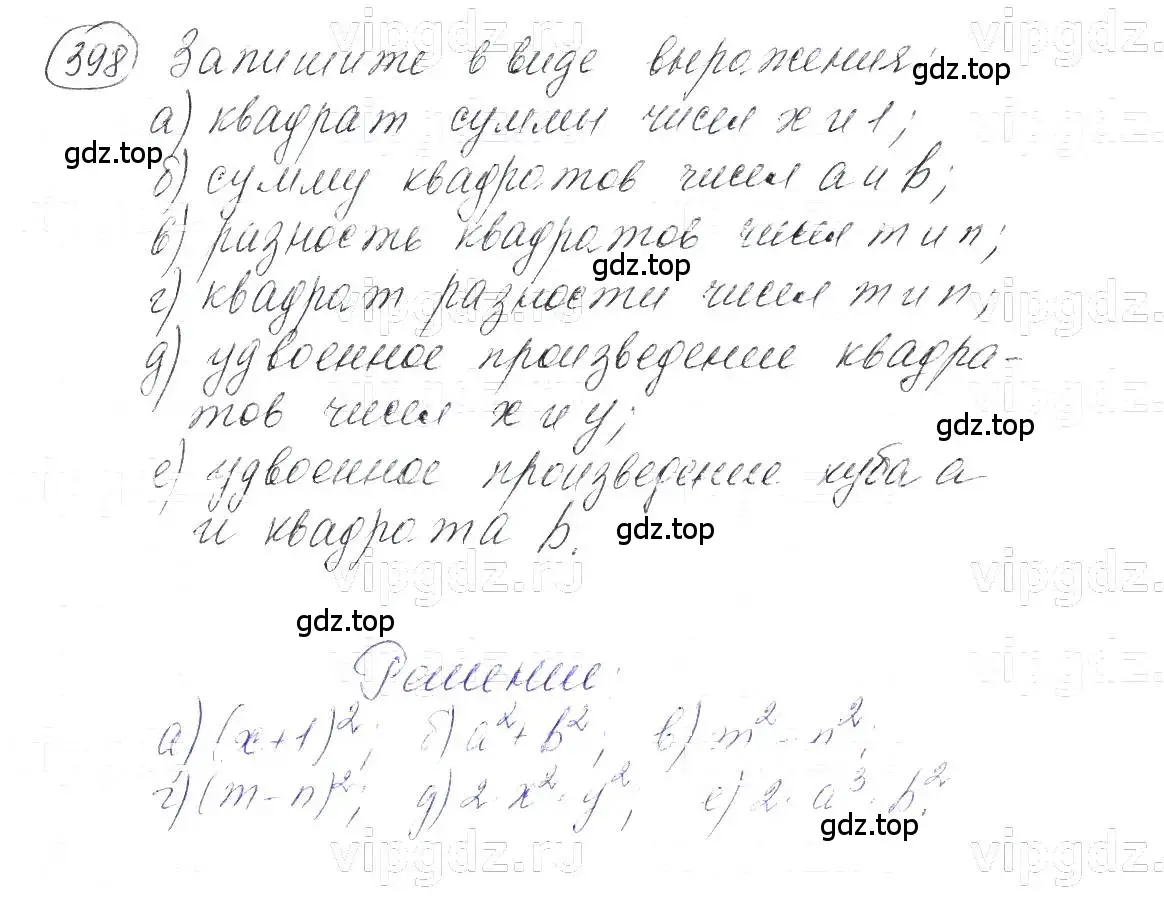 398 Запишите в виде выражения:
gdz.top
а) квадрат суммы чисел х и 1;
gdz.top
б) сумму квадратов чисел a и b;
в) разность квадратов чисел m и n;
gdz.top
г) квадрат разности чисел m и n;
д) удвоенное произведение квадра-
тов чисел х и у;
gdz.top
е) удвоенное произведение куба a
и квадрата b.
gdz.top
vipgdz.ru
gdz.top
Решение:
а) (x+1)²; б) a²+b²; в) m²-n²;
г) (m-n)²; д) 2·x²·y²; е) 2·a³·b².
gdz.top
vipgdz.ru